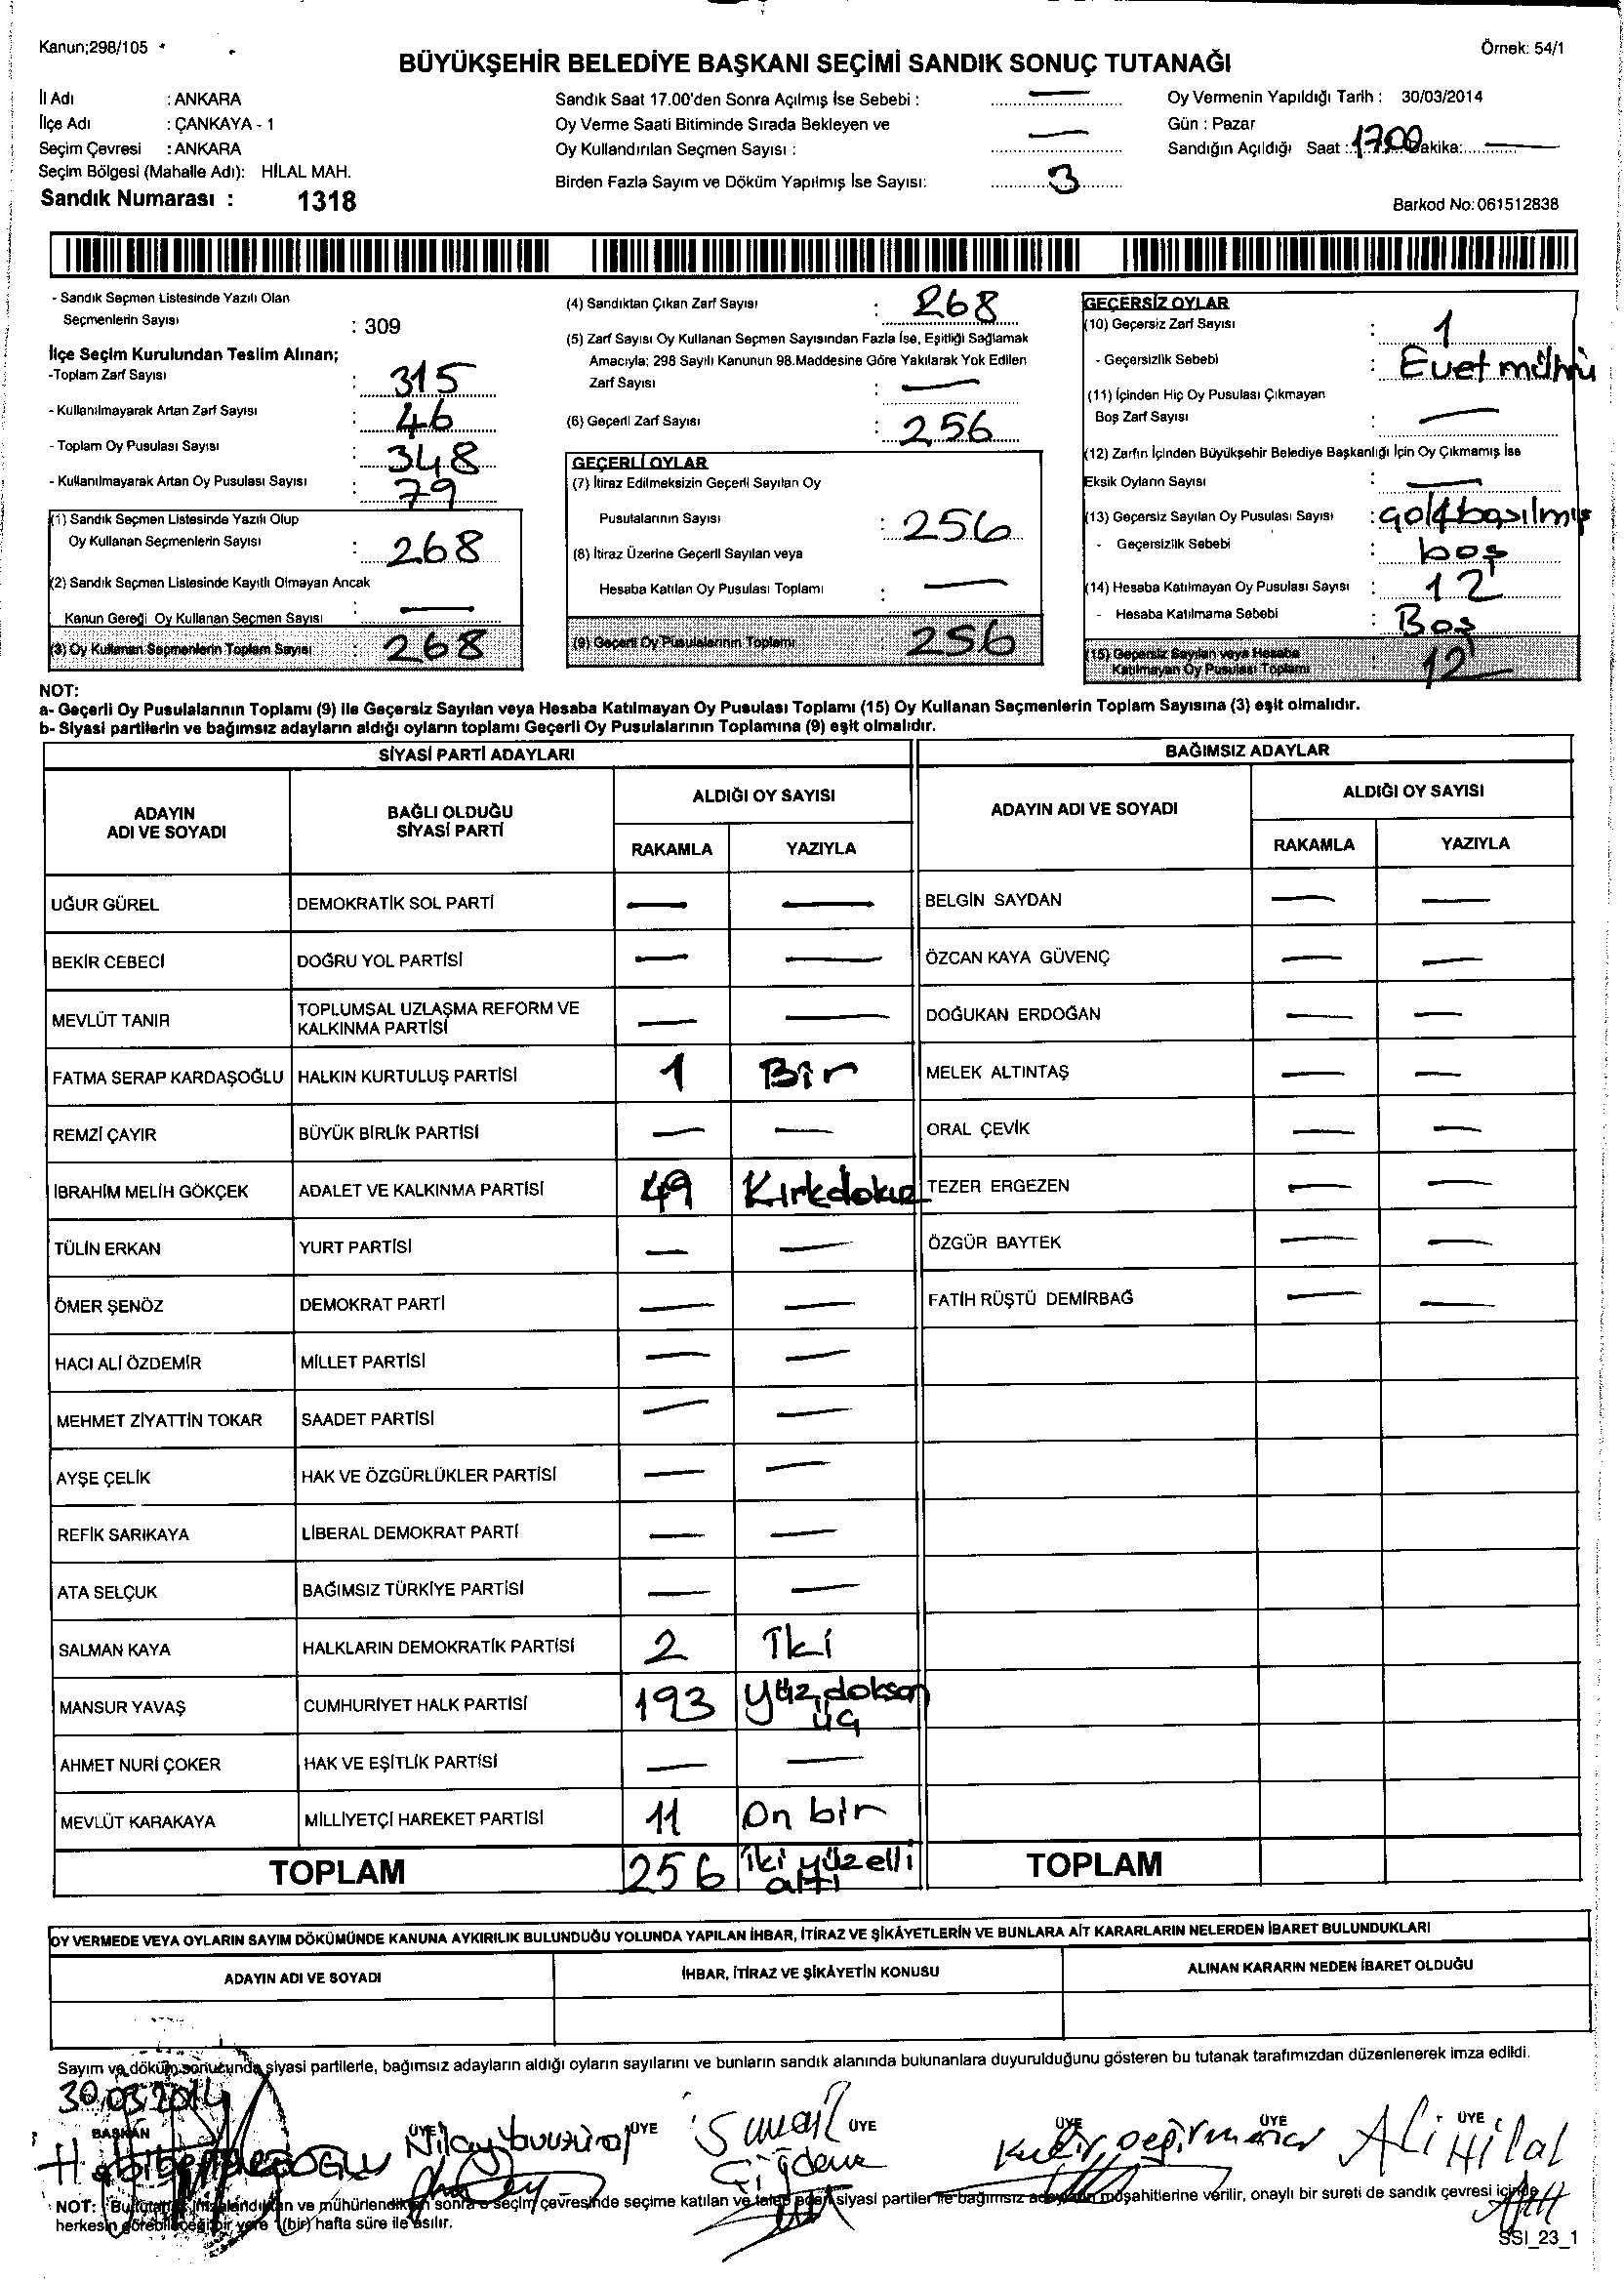 Kanun;298/105
Örnek: 54/1
BÜYÜKŞEHİR BELEDİYE BAŞKANI SEÇİMİ SANDIK SONUÇ TUTANAĞI
İl Adı : ANKARA
İlçe Adı : ÇANKAYA - 1
Seçim Çevresi : ANKARA
Seçim Bölgesi (Mahalle Adı): HİLAL MAH.
Sandık Numarası : 1318
Sandık Saat 17.00'den Sonra Açılmış İse Sebebi : —
Oy Verme Saati Bitiminde Sırada Bekleyen ve
Oy Kullandırılan Seçmen Sayısı : —
Birden Fazla Sayım ve Döküm Yapılmış İse Sayısı: 3
Oy Vermenin Yapıldığı Tarih : 30/03/2014
Gün : Pazar
Sandığın Açıldığı Saat : 17.00 Dakika: —
Barkod No: 061512838
- Sandık Seçmen Listesinde Yazılı Olan
Seçmenlerin Sayısı : 309
İlçe Seçim Kurulundan Teslim Alınan;
-Toplam Zarf Sayısı : 315
- Kullanılmayarak Artan Zarf Sayısı : 46
- Toplam Oy Pusulası Sayısı : 348
- Kullanılmayarak Artan Oy Pusulası Sayısı : 79
(1) Sandık Seçmen Listesinde Yazılı Olup
Oy Kullanan Seçmenlerin Sayısı : 268
(2) Sandık Seçmen Listesinde Kayıtlı Olmayan Ancak
Kanun Gereği Oy Kullanan Seçmen Sayısı : —
(3) Oy Kullanan Seçmenlerin Toplam Sayısı : 268
(4) Sandıktan Çıkan Zarf Sayısı : 268
(5) Zarf Sayısı Oy Kullanan Seçmen Sayısından Fazla İse, Eşitliği Sağlamak
Amacıyla; 298 Sayılı Kanunun 98.Maddesine Göre Yakılarak Yok Edilen
Zarf Sayısı : —
(6) Geçerli Zarf Sayısı : 256
GEÇERLİ OYLAR
(7) İtiraz Edilmeksizin Geçerli Sayılan Oy
Pusulalarının Sayısı : 256
(8) İtiraz Üzerine Geçerli Sayılan veya
Hesaba Katılan Oy Pusulası Toplamı : —
(9) Geçerli Oy Pusulalarının Toplamı 256
GEÇERSİZ OYLAR
(10) Geçersiz Zarf Sayısı : 1
- Geçersizlik Sebebi : Evet mührü
(11) İçinden Hiç Oy Pusulası Çıkmayan
Boş Zarf Sayısı : —
(12) Zarfın İçinden Büyükşehir Belediye Başkanlığı İçin Oy Çıkmamış İse
Eksik Oyların Sayısı : —
(13) Geçersiz Sayılan Oy Pusulası Sayısı :
- Geçersizlik Sebebi : boş
(14) Hesaba Katılmayan Oy Pusulası Sayısı : 12
- Hesaba Katılmama Sebebi : Boş
(15) Geçersiz Sayılan veya Hesaba
Katılmayan Oy Pusulası Toplamı : 12
NOT:
a- Geçerli Oy Pusulalarının Toplamı (9) ile Geçersiz Sayılan veya Hesaba Katılmayan Oy Pusulası Toplamı (15) Oy Kullanan Seçmenlerin Toplam Sayısına (3) eşit olmalıdır.
b- Siyasi partilerin ve bağımsız adayların aldığı oyların toplamı Geçerli Oy Pusulalarının Toplamına (9) eşit olmalıdır.
SİYASİ PARTİ ADAYLARI
ADAYIN ADI VE SOYADI BAĞLI OLDUĞU SİYASİ PARTİ ALDIĞI OY SAYISI
RAKAMLA YAZIYLA
UĞUR GÜREL DEMOKRATİK SOL PARTİ — —
BEKİR CEBECİ DOĞRU YOL PARTİSİ — —
MEVLÜT TANIR TOPLUMSAL UZLAŞMA REFORM VE KALKINMA PARTİSİ — —
FATMA SERAP KARDAŞOĞLU HALKIN KURTULUŞ PARTİSİ 1 Bir
REMZİ ÇAYIR BÜYÜK BİRLİK PARTİSİ — —
İBRAHİM MELİH GÖKÇEK ADALET VE KALKINMA PARTİSİ 49 Kırkdokuz
TÜLİN ERKAN YURT PARTİSİ — —
ÖMER ŞENÖZ DEMOKRAT PARTİ — —
HACI ALİ ÖZDEMİR MİLLET PARTİSİ — —
MEHMET ZİYATTİN TOKAR SAADET PARTİSİ — —
AYŞE ÇELİK HAK VE ÖZGÜRLÜKLER PARTİSİ — —
REFİK SARIKAYA LİBERAL DEMOKRAT PARTİ — —
ATA SELÇUK BAĞIMSIZ TÜRKİYE PARTİSİ — —
SALMAN KAYA HALKLARIN DEMOKRATİK PARTİSİ 2 İki
MANSUR YAVAŞ CUMHURİYET HALK PARTİSİ 193 yüz doksan üç
AHMET NURİ ÇOKER HAK VE EŞİTLİK PARTİSİ — —
MEVLÜT KARAKAYA MİLLİYETÇİ HAREKET PARTİSİ 11 On bir
TOPLAM 256 iki yüz elli altı
BAĞIMSIZ ADAYLAR
ADAYIN ADI VE SOYADI ALDIĞI OY SAYISI
RAKAMLA YAZIYLA
BELGİN SAYDAN — —
ÖZCAN KAYA GÜVENÇ — —
DOĞUKAN ERDOĞAN — —
MELEK ALTINTAŞ — —
ORAL ÇEVİK — —
TEZER ERGEZEN — —
ÖZGÜR BAYTEK — —
FATİH RÜŞTÜ DEMİRBAĞ — —
TOPLAM
OY VERMEDE VEYA OYLARIN SAYIM DÖKÜMÜNDE KANUNA AYKIRILIK BULUNDUĞU YOLUNDA YAPILAN İHBAR, İTİRAZ VE ŞİKÂYETLERİN VE BUNLARA AİT KARARLARIN NELERDEN İBARET BULUNDUKLARI
ADAYIN ADI VE SOYADI İHBAR, İTİRAZ VE ŞİKÂYETİN KONUSU ALINAN KARARIN NEDEN İBARET OLDUĞU
Sayım ve döküm sonucunda siyasi partilerle, bağımsız adayların aldığı oyların sayılarını ve bunların sandık alanında bulunanlara duyurulduğunu gösteren bu tutanak tarafımızdan düzenlenerek imza edildi.
30.03.2014
BAŞKAN ÜYE ÜYE ÜYE ÜYE ÜYE ÜYE
Nilay İsmail Çiğdem Kadir Değirmenci Ali Hilal
NOT: Bu tutanak imzalandıktan ve mühürlendikten sonra o seçim çevresinde seçime katılan ve talep eden siyasi partiler ile bağımsız adayların müşahitlerine verilir, onaylı bir sureti de sandık çevresi içinde
herkesin görebileceği bir yere 1(bir) hafta süre ile asılır.
SSI_23_1